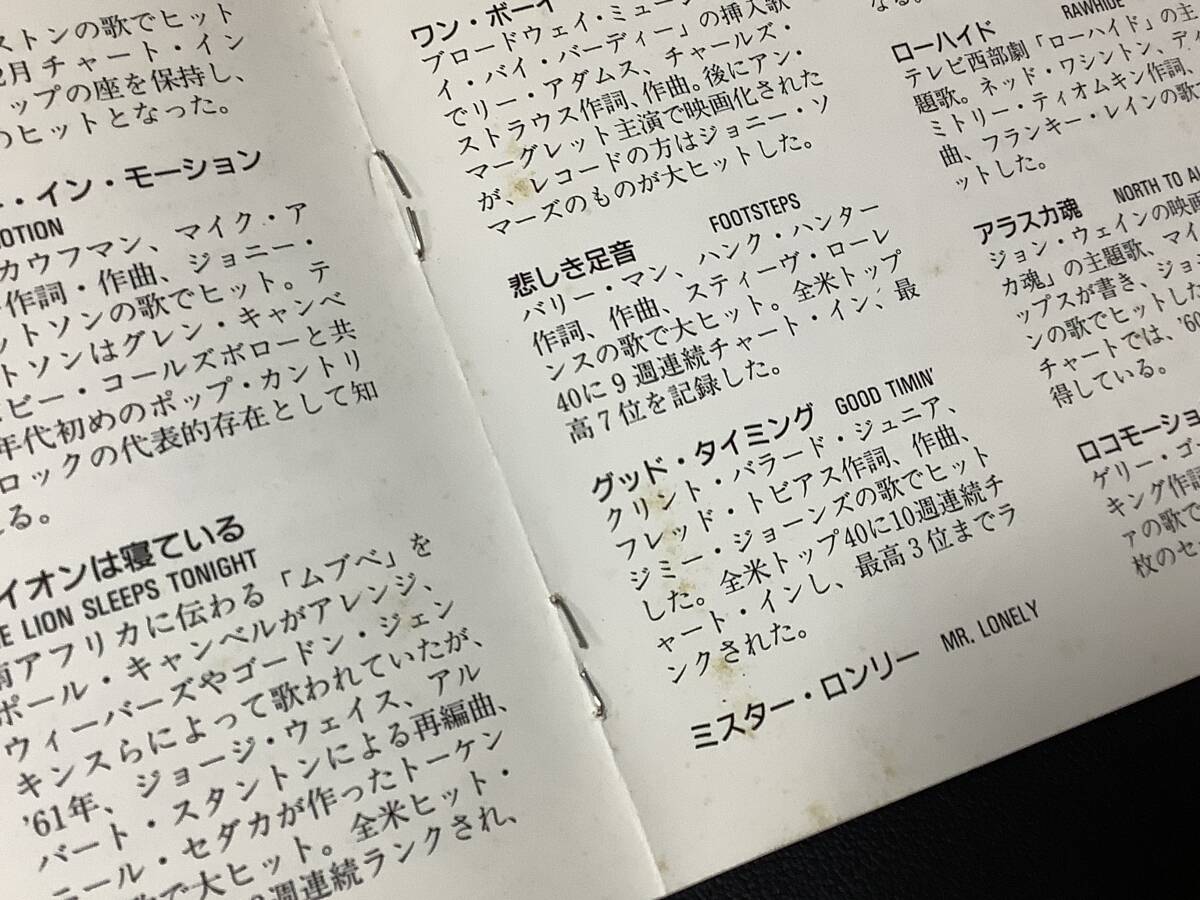 ストンの歌でヒット
2月チャート・イン
ップの座を保持し、
のヒットとなった。
・イン・モーション
OTION
カウフマン、マイク・ア
作詞・作曲、ジョニー・
ットソンの歌でヒット。テ
トソンはグレン・キャンベ
ビー・コールズボローと共
年代初めのポップ・カントリ
ロックの代表的存在として知
える。
イオンは寝ている
E LION SLEEPS TONIGHT
南アフリカに伝わる「ムブベ」を
ポール・キャンベルがアレンジ、
ウィーバーズやゴードン・ジェン
キンスらによって歌われていたが、
'61年、ジョージ・ウェイス、アル
バート・スタントンによる再編曲、
ニール・セダカが作ったトーケン
歌で大ヒット。全米ヒット・
週連続ランクされ、
ワン・ボーイ
ブロードウェイ・ミュー
イ・バイ・バーディー」の挿入歌
でリー・アダムス、チャールズ・
ストラウス作詞、作曲。後にアン・
マーグレット主演で映画化された
が、レコードの方はジョニー・ソ
マーズのものが大ヒットした。
悲しき足音 FOOTSTEPS
バリー・マン、ハンク・ハンター
作詞、作曲、スティーヴ・ローレ
ンスの歌で大ヒット。全米トップ
40に9週連続チャート・イン、最
高7位を記録した。
グッド・タイミング GOOD TIMIN'
クリント・バラード・ジュニア、
フレッド・トビアス作詞、作曲、
ジミー・ジョーンズの歌でヒット
した。全米トップ40に10週連続チ
ャート・インし、最高3位までラ
ンクされた。
ミスター・ロンリー MR. LONELY
なる。
ローハイド RAWHIDE
テレビ西部劇「ローハイド」の主
題歌。ネッド・ワシントン、ディ
ミトリー・ティオムキン作詞、
曲、フランキー・レインの歌
ットした。
アラスカ魂 NORTH TO AL
ジョン・ウェインの映画
カ魂」の主題歌、マイ
ップスが書き、ジョ
ンの歌でヒットした
チャートでは、'60
得している。
ロコモーショ
ゲリー・ゴ
キング作詞
ァの歌で
枚のセー